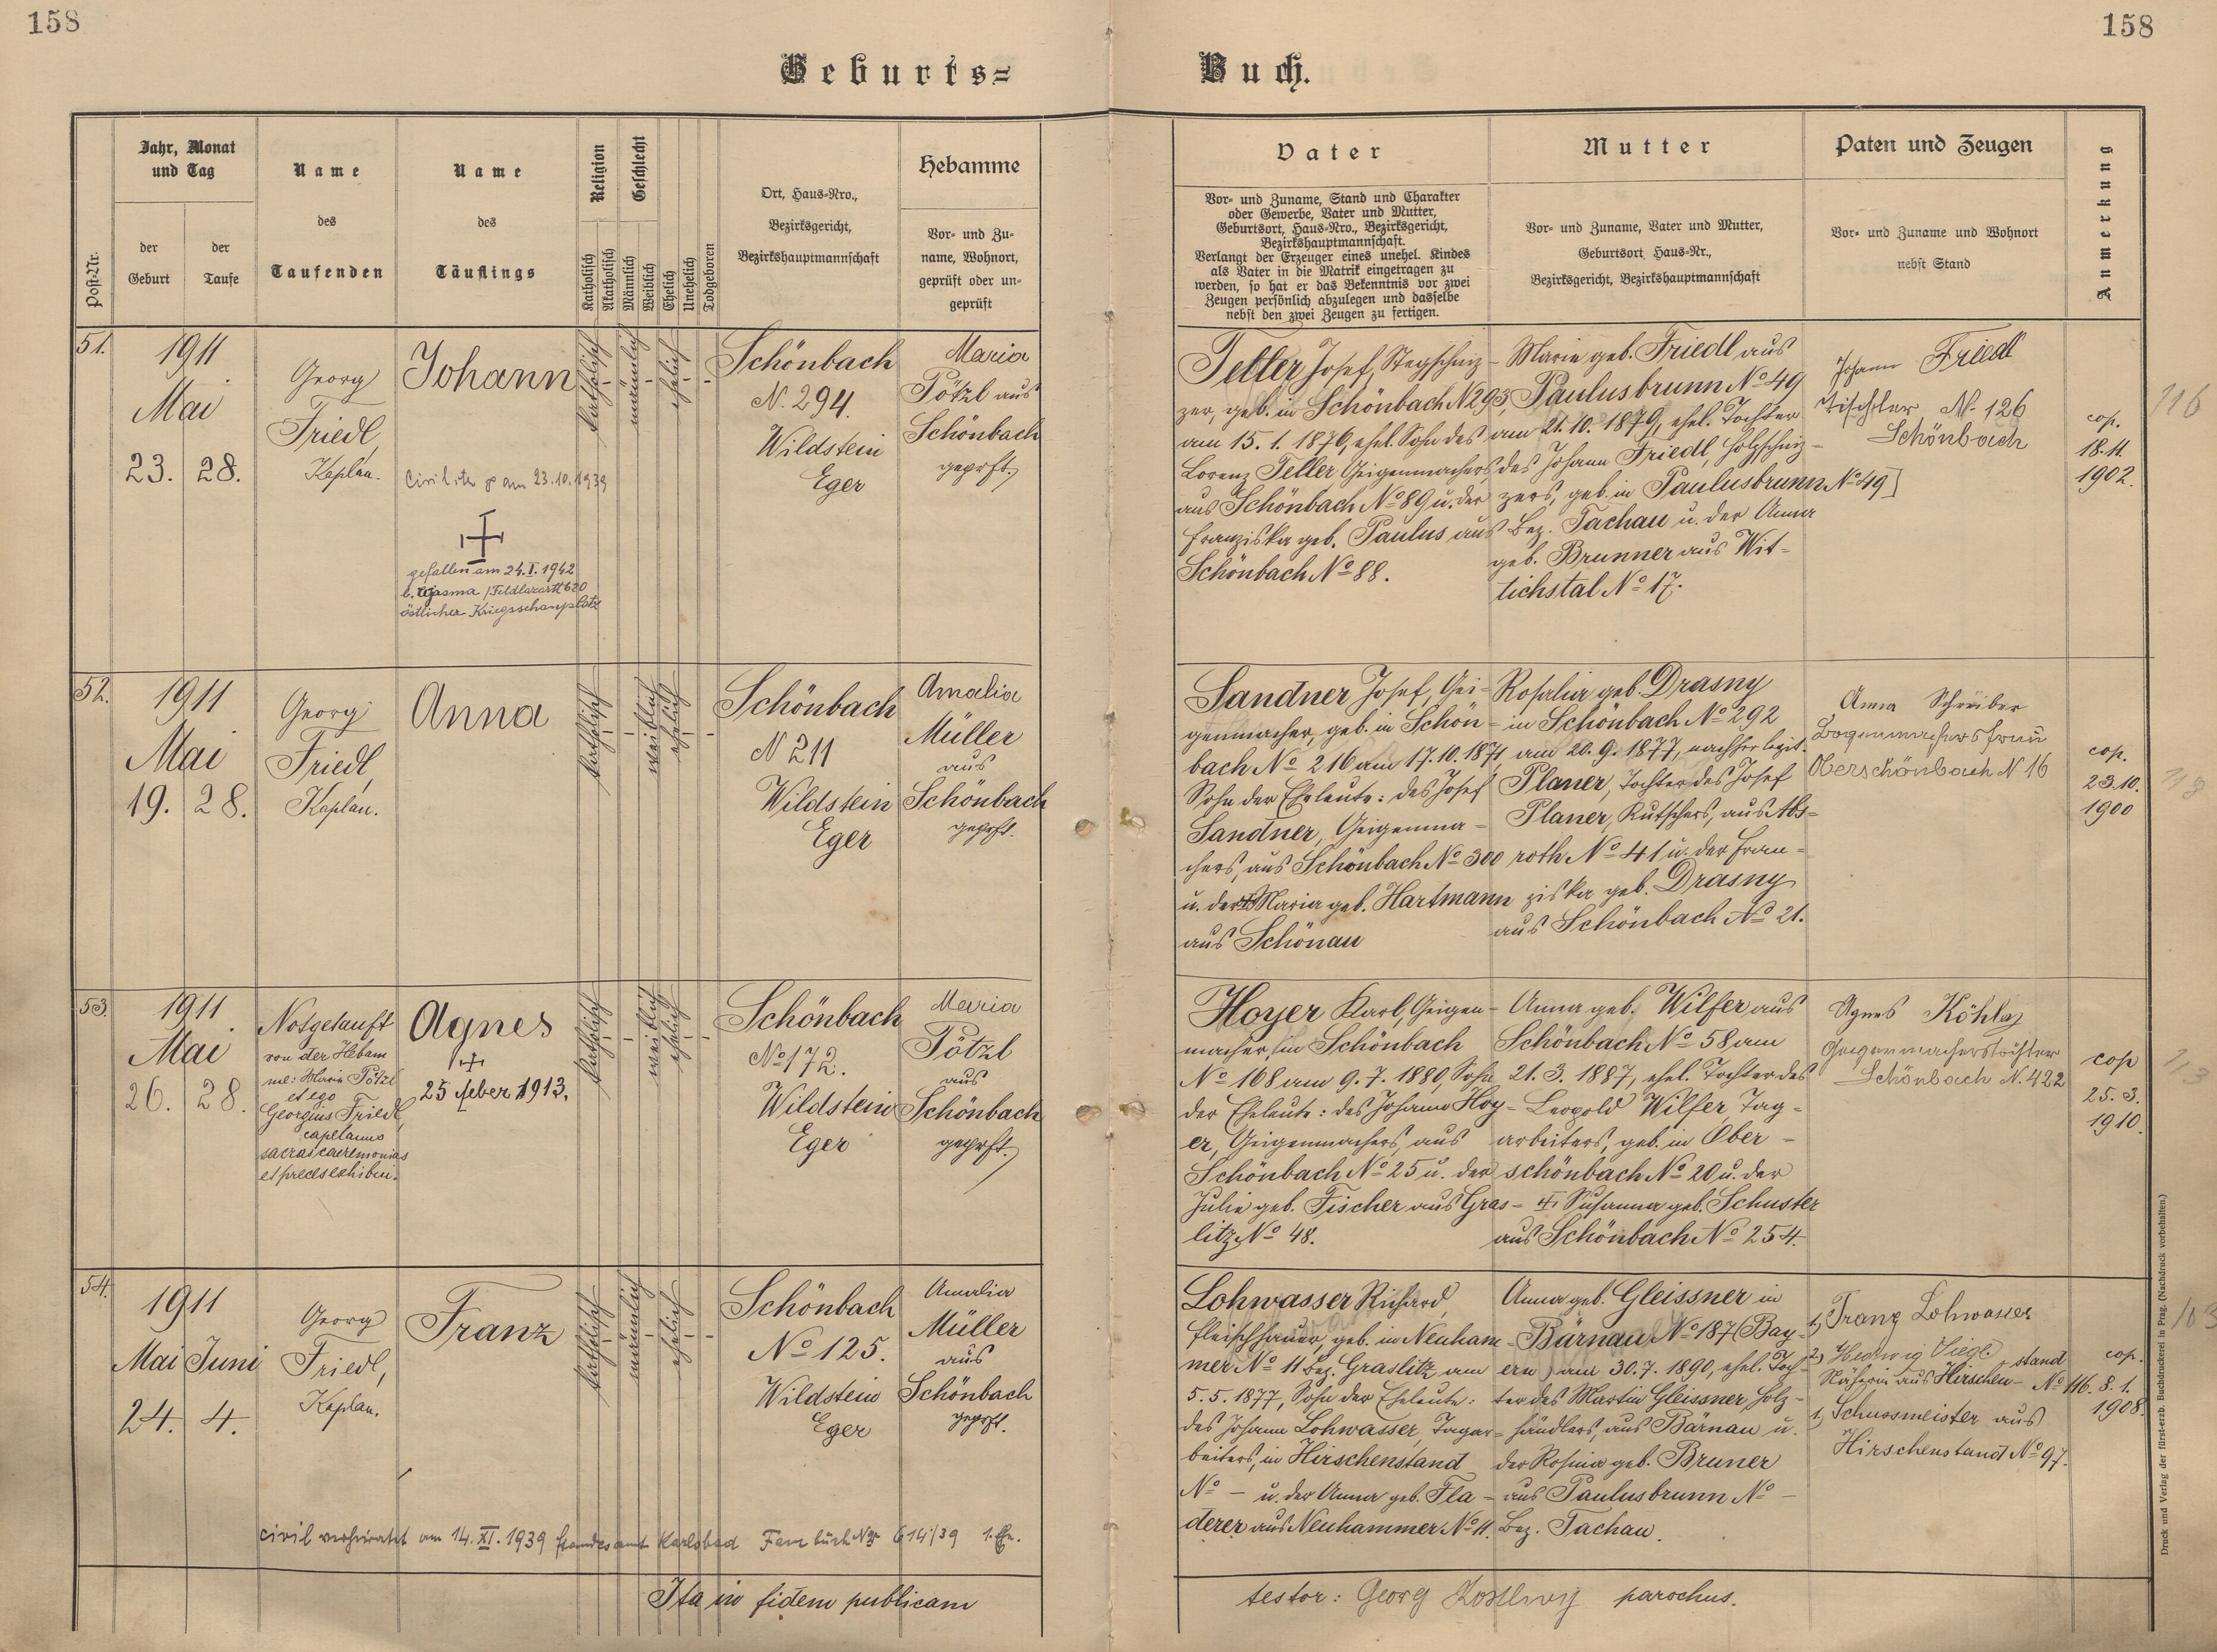 158
158
Geburts=
Buch.
Post-Nr.
Jahr, Monat
und Tag
der
Geburt
der
Taufe
Name
des
Taufenden
Name
des
Täuflings
Religion
Katholisch
Akatholisch
Geschlecht
Männlich
Weiblich
Ehelich
Unehelich
Todgeboren
Ort, Haus-Nro.,
Bezirksgericht,
Bezirkshauptmannschaft
Hebamme
Vor- und Zu-
name, Wohnort,
geprüft oder un-
geprüft
Vater
Vor- und Zuname, Stand und Charakter
oder Gewerbe, Vater und Mutter,
Geburtsort, Haus-Nro., Bezirksgericht,
Bezirkshauptmannschaft.
Verlangt der Erzeuger eines unehel. Kindes
als Vater in die Matrik eingetragen zu
werden, so hat er das Bekenntnis vor zwei
Zeugen persönlich abzulegen und dasselbe
nebst den zwei Zeugen zu fertigen.
Mutter
Vor- und Zuname, Vater und Mutter,
Geburtsort Haus-Nr.,
Bezirksgericht, Bezirkshauptmannschaft
Paten und Zeugen
Vor- und Zuname und Wohnort
nebst Stand
Anmerkung
51.
1911
Mai
23. 28.
Georg
Friedl,
Kaplan.
Johann
am 23.10.1939
gefallen am 24.I.1942
b. Wjasma /Feldlazarett 620
östlicher Kriegsschauplatz
katholisch
männlich
ehelich
Schönbach
N. 294.
Wildstein
Eger
Maria
Pötzl aus
Schönbach
geprft.
Teller Josef, Stegschnit-
zer, geb. in Schönbach N 293,
am 15. 1. 1876, ehel. Sohn des
Lorenz Teller Geigenmachers,
aus Schönbach No 89 u. der
Franziska geb. Paulus aus
Schönbach No 88.
Marie geb. Friedl aus
Paulusbrunn No 49
am 21. 10. 1879, ehel. Tochter
des Johann Friedl, Holzschnit-
zers, geb. in Paulusbrunn No 49]
Bez. Tachau u. der Anna
geb. Brunner aus Wit-
tichstal No 17.
Johann Friedl
Tischler N. 126
Schönbach
cop.
18.11.
1902.
116
52.
1911
Mai
19. 28.
Georg
Friedl,
Kaplan.
Anna
katholisch
weiblich
ehelich
Schönbach
N 211
Wildstein
Eger
Amalia
Müller
aus
Schönbach
geprft.
Sandner Josef, Gei-
genmacher, geb. in Schön-
bach No 216 am 17. 10. 1871,
Sohn der Eheleute: des Josef
Sandner, Geigenma-
chers, aus Schönbach No 300
u. der Maria geb. Hartmann
aus Schönau
Rosalia geb. Drasny
in Schönbach No 292
am 20. 9. 1877, nachher legit.
Planer, Tochter des Josef
Planer, Kutschers, aus Abs-
roth No 41 u. der Fran-
ziska geb. Drasny
aus Schönbach No 21.
Anna Schreiber
Bogenmachersfrau
Oberschönbach N 16
cop.
23.10.
1900
53.
1911
Mai
26. 28.
Notgetauft
von der Hebam
me: Maria Pötzl
et ego
Georgius Friedl,
capellanus
sacras caeremonias
et preces exhibui.
Agnes
25 feber 1913.
katholisch
weiblich
ehelich
Schönbach
No 172.
Wildstein
Eger
Maria
Pötzl
aus
Schönbach
geprft.
Hoyer Karl, Geigen-
macher, in Schönbach
No 168 am 9. 7. 1880, Sohn
der Eheleute: des Johann Hoy-
er, Geigenmachers, aus
Schönbach No 25 u. der
Julie geb. Fischer aus Gras-
litz No 48.
Anna geb. Wilfer aus
Schönbach No 58 am
21. 3. 1887, ehel. Tochter des
Leopold Wilfer, Tag-
arbeiters, geb. in Ober-
schönbach No 20 u. der
Susanna geb. Schuster
aus Schönbach No 254.
Agnes Köhler
Geigenmacherstochter
Schönbach N. 422
cop
25. 3.
1910.
113
54.
1911
Mai Juni
24. 4.
Georg
Friedl,
Kaplan.
Franz
katholisch
männlich
ehelich
Schönbach
No 125.
Wildstein
Eger
Amalia
Müller
aus
Schönbach
geprft.
civil verheiratet am 14. XI. 1939 Standesamt Karlsbad Fam buch Nr 614/39
Lohwasser Richard,
Fleischhauer, geb. in Neuham-
mer No 11 Bez. Graslitz am
5. 5. 1877, Sohn der Eheleute:
des Johann Lohwasser, Tagar-
beiters, in Hirschenstand
No - u. der Anna geb. Fla-
derer aus Neuhammer No 11.
Anna geb. Gleissner in
Bärnau No 187 (Bay-
ern) am 30. 7. 1890, ehel. Toch-
ter des Martin Gleissner, Holz-
händlers, aus Bärnau u.
der Rosina geb. Bruner
aus Paulusbrunn No -
Bez. Tachau.
1, Franz Lohwasser
2) Hedwig
Näherin aus Hirschen- stand No 116.
1, Schussmeister aus
Hirschenstand No 97.
cop.
8. 1.
1908.
103
Ita in fidem publicam
testor: Georg parochus.
Druck und Verlag der fürst-erzb. Buchdruckerei in Prag. (Nachdruck vorbehalten.)